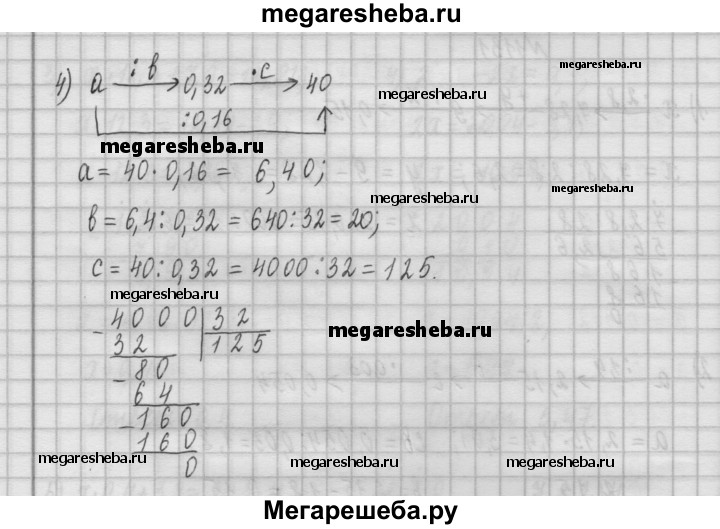 megaresheba.ru
4) a : в 0,32 · c 40
megaresheba.ru
: 0,16
megaresheba.ru
a = 40 · 0,16 = 6,40;
megaresheba.ru
в = 6,4 : 0,32 = 640 : 32 = 20;
c = 40 : 0,32 = 4000 : 32 = 125.
megaresheba.ru
- 4000 | 32
32 | 125
megaresheba.ru
- 80
64
- 160
160
0
megaresheba.ru
megaresheba.ru
megaresheba.ru
megaresheba.ru
Мегарешеба.ру